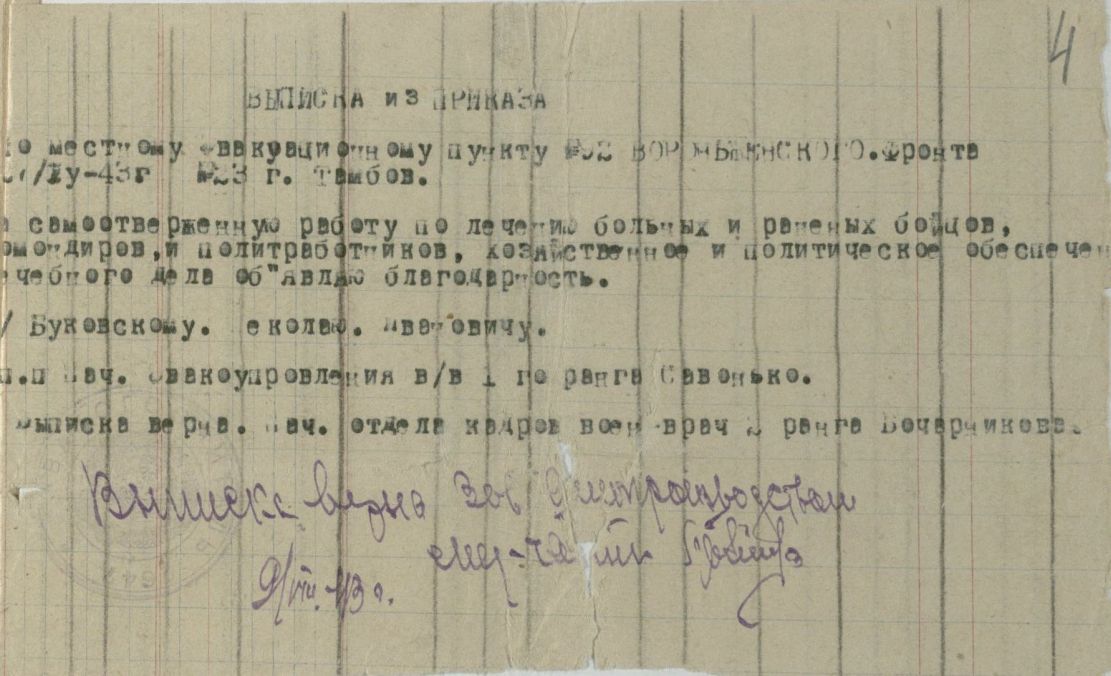 4
ВЫПИСКА из ПРИКАЗА
по местному эвакуационному пункту №92 ВОРОНЕЖЕНСКОГО.Фронта
27/IУ-43г №23 г. Тамбов.
а самоотверженную работу по лечению больных и раненых бойцов,
омондиров,и политработников, хозяйственное и политическое обеспечен
ечебного дела об"являю благодарность.
/ Буковскому. Неколаю. Ивановичу.
п.п Нач. Эвакоупровления в/в 1 го ранга Савонько.
Выписка верна. Нач. отдела кадров воен-врач 2 ранга Бочарникова.
Выписка верна Зав Делопроизводством
9/VIII-43 г.